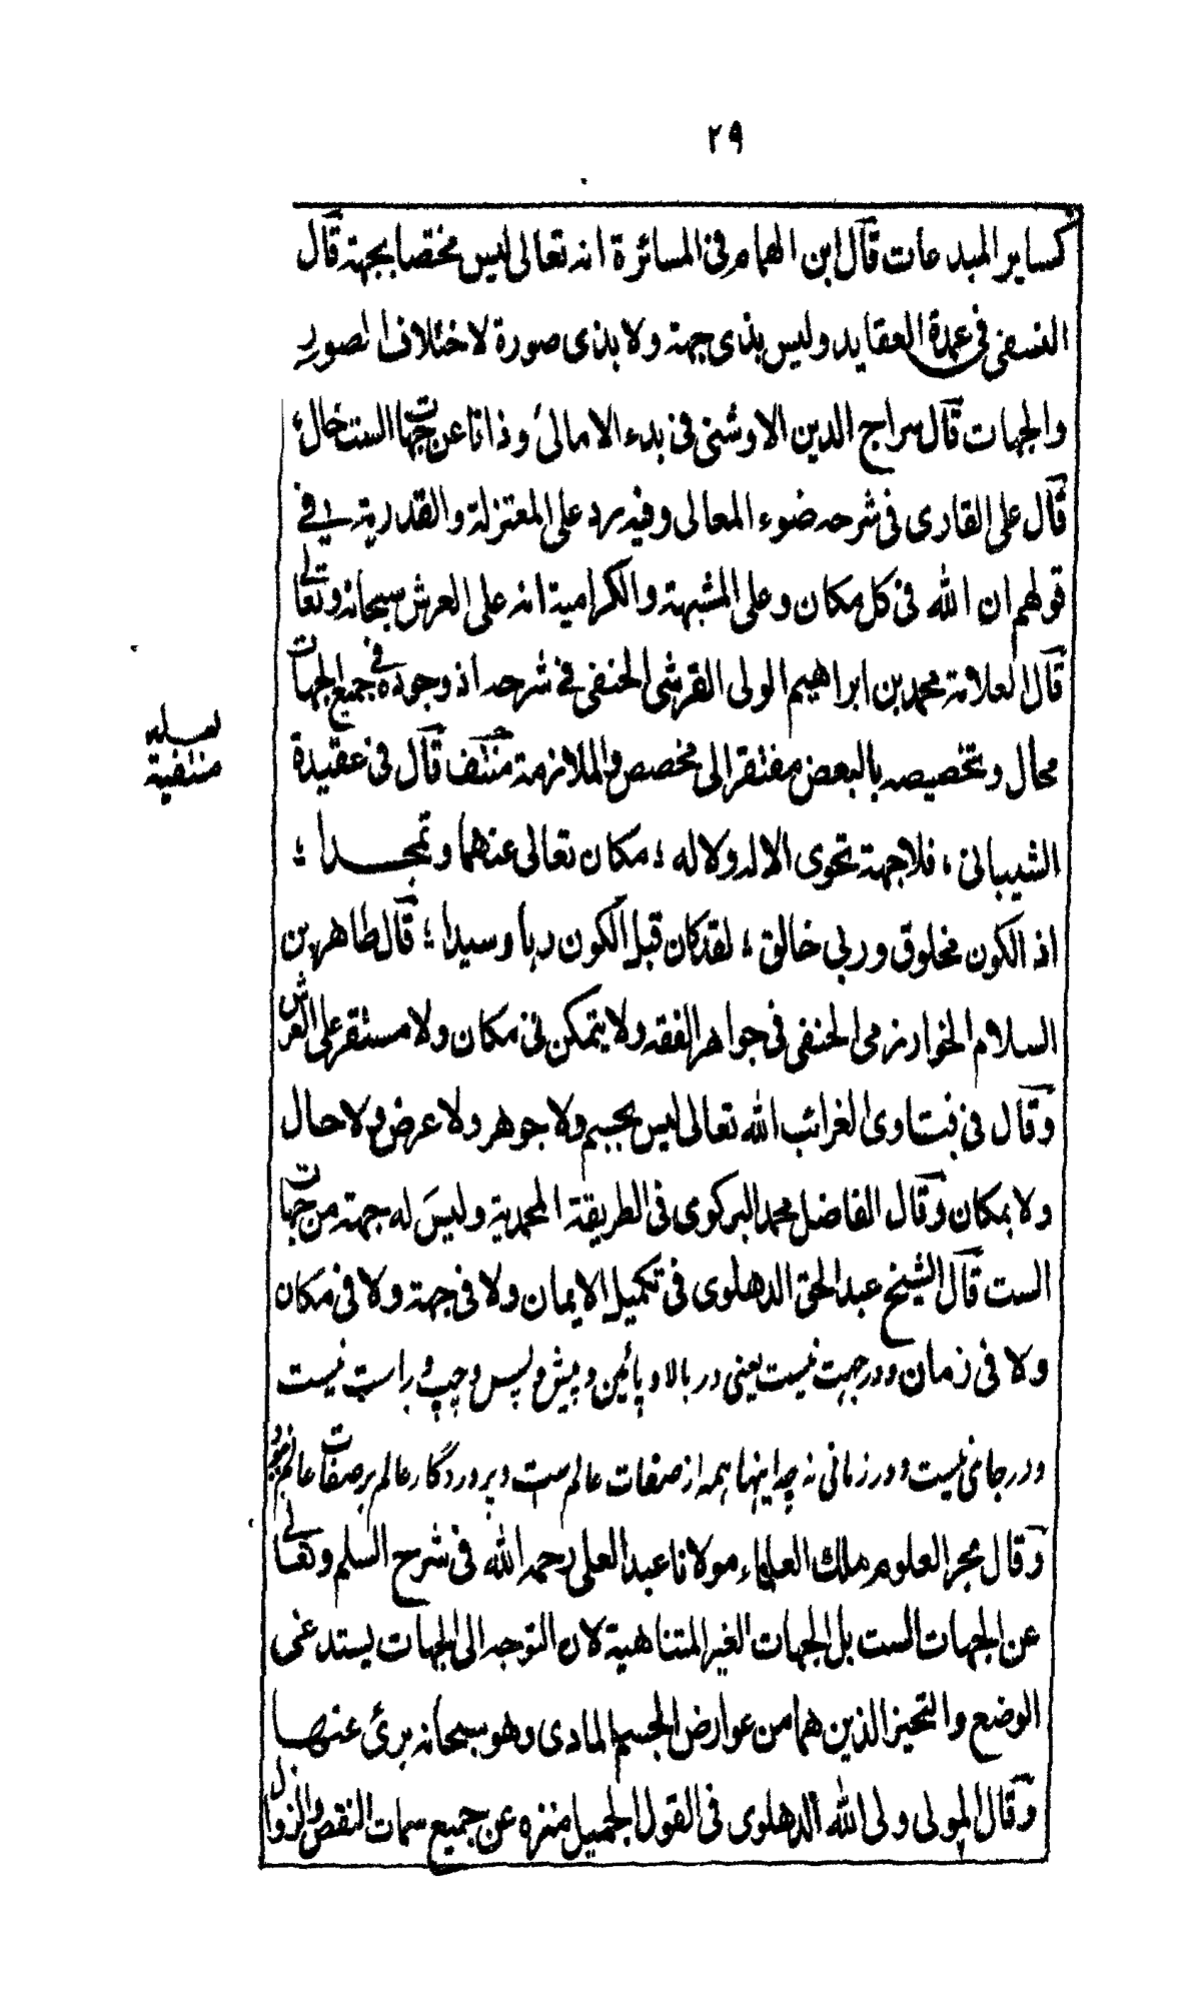 ٢٩
كساير المبدعات قال ابن الهمام فى المسائرة انه تعالى ليس مختصا بجهة قال
النسفى فى عمدة العقايد وليس بذى جهة ولا بذى صورة لاختلاف الصور
والجهات قال سراج الدين الاوشى فى بدء الامالئ وذاتا عن جهات الست خالئ
قال على القارى فى شرحه ضوء المعالى وفيه رد على المعتزلة والقدرية فى
قولهم ان الله فى كل مكان وعلى المشبهة والكرامية انه على العرش سبحانه وتعالى
قال العلامة محمد بن ابراهيم الولى القرشى الحنفى فى شرحه اذ وجوده فى جميع الجهات
محال وتخصيصه بالبعض مفتقر الى مخصص فالملازمة منتف قال فى عقيدة
لسله
منتفية
الشيبانى ، فلا جهة تحوى الاله ولا له ؛ مكان تعالى عنهما وتمجدا ؛
اذ الكون مخلوق وربى خالق ؛ لقد كان قبل الكون ربا وسيدا ؛ قال طاهر بن
السلام الخوارزمى الحنفى فى جواهر الفقه ولا يتمكن فى مكان ولا مستقر على العرش
وقال فى فتاوى الغرائب الله تعالى ليس بجسم ولا جوهر ولا عرض ولا حال
ولا بمكان وقال الفاضل محمد البركوى فى الطريقة المحمدية وليس له جهة من جهات
الست قال الشيخ عبد الحق الدهلوى فى تكميل الايمان ولا فى جهة ولا فى مكان
ولا فى زمان ودر جهت نيست يعنى در بالا و پائين و پيش و پس و چپ و راست نيست
ودر جاى نيست ودر زمانى نه چه اينها همه از صفات عالم ست و پروردگار عالم بر صفات عالم نبود
وقال بحر العلوم ملك العلماء مولانا عبد العلى رحمه الله فى شرح السلم وتعالى
عن الجهات الست بل الجهات الغير المتناهية لان التوجه الى الجهات يستدعى
الوضع والتحيز الذين هما من عوارض الجسم المادى وهو سبحانه برئ عنها
وقال المولى ولى الله الدهلوى فى القول الجميل منزه عن جميع سمات النقص والزوال